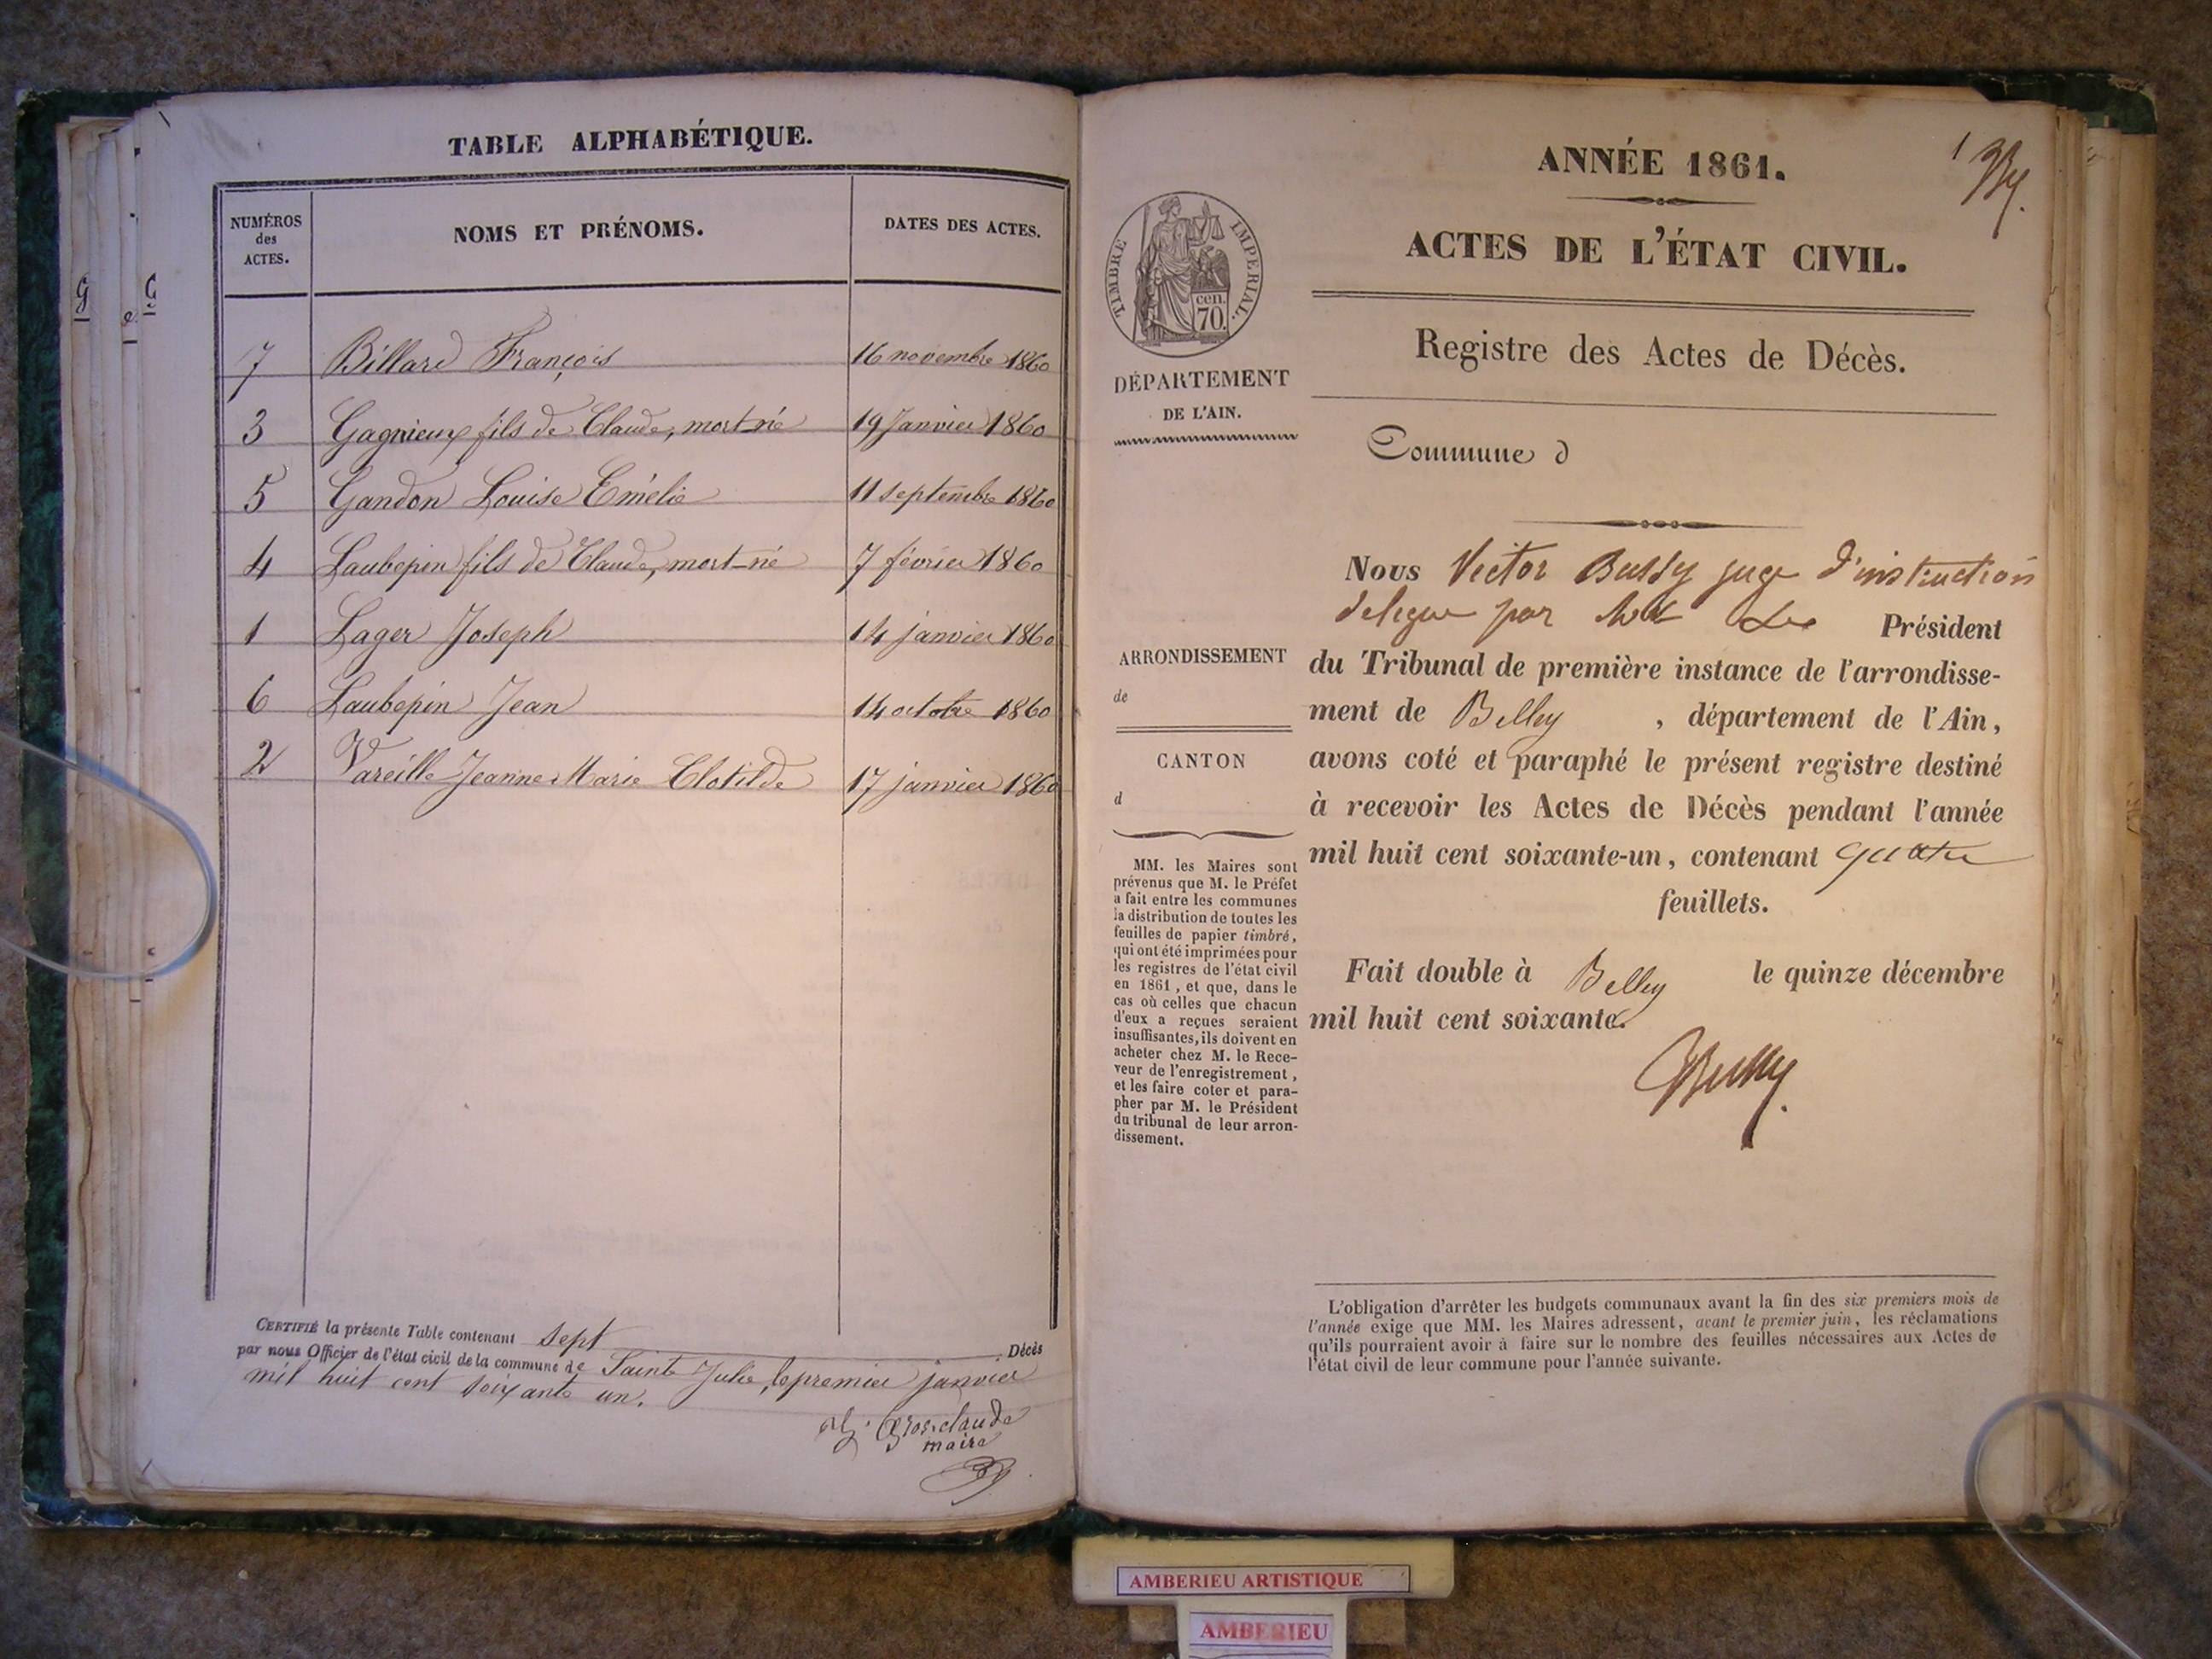 TABLE ALPHABÉTIQUE.
NUMÉROS des ACTES. NOMS ET PRÉNOMS. DATES DES ACTES.
7 Billard François 16 novembre 1860
3 Gagnieux fils de Claude, mort-né 19 Janvier 1860
5 Gandon Louise Emélie 11 septembre 1860
4 Laubepin fils de Claude, mort-né 7 février 1860
1 Lager Joseph 14 janvier 1860
6 Laubepin Jean 14 octobre 1860
2 Vareille Jeanne Marie Clotilde 17 janvier 1860
CERTIFIÉ la présente Table contenant sept Décès
par nous Officier de l'état civil de la commune de Sainte Julie, le premier janvier
mil huit cent soixante un.
Grosclaude
maire
1
ANNÉE 1861.
ACTES DE L'ÉTAT CIVIL.
Registre des Actes de Décès.
TIMBRE IMPERIAL.
cen.
70.
DÉPARTEMENT
DE L'AIN.
Commune d
Nous Victor Bussy juge d'instruction
delegue par Le Président
du Tribunal de première instance de l'arrondisse-
ment de Belley , département de l'Ain,
avons coté et paraphé le présent registre destiné
à recevoir les Actes de Décès pendant l'année
mil huit cent soixante-un, contenant quatre
feuillets.
Fait double à Belley le quinze décembre
mil huit cent soixante.
Bussy
ARRONDISSEMENT
de
CANTON
d
MM. les Maires sont
prévenus que M. le Préfet
a fait entre les communes
la distribution de toutes les
feuilles de papier timbré,
qui ont été imprimées pour
les registres de l'état civil
en 1861, et que, dans le
cas où celles que chacun
d'eux a reçues seraient
insuffisantes, ils doivent en
acheter chez M. le Rece-
veur de l'enregistrement,
et les faire coter et para-
pher par M. le Président
du tribunal de leur arron-
dissement.
L'obligation d'arrêter les budgets communaux avant la fin des six premiers mois de
l'année exige que MM. les Maires adressent, avant le premier juin, les réclamations
qu'ils pourraient avoir à faire sur le nombre des feuilles nécessaires aux Actes de
l'état civil de leur commune pour l'année suivante.
AMBERIEU ARTISTIQUE
AMBERIEU